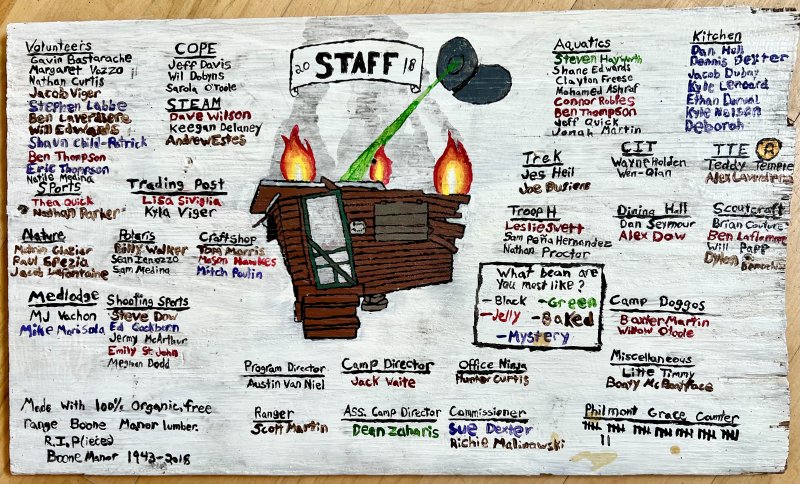 20 STAFF 18
Volunteers
Gavin Bastarache
Margaret Vozzo
Nathan Curtis
Jacob Viger
Stephen Labbe
Ben Laverdiere
Will Edwards
Shaun Child-Patrick
Ben Thompson
Eric Thompson
Natile Medina
Sports
Thea Quick
Nathan Parker
COPE
Jeff Davis
Wil Dobyns
Sarola O'Toole
STEAM
Dave Wilson
Keegan Delaney
Andrew Estes
Trading Post
Lisa Siviglia
Kyla Viger
Nature
Glazier
Paul Spezia
Jacob Lafontaine
Polaris
Billy Walker
Sean Ianuzzo
Sam Medina
Craftshop
Tom Morris
Mason Hawkes
Mitch Poulin
Medlodge
MJ Vachon
Mike Marisola
Shooting Sports
Steve Dow
Ed Cockborn
Jermy McArthur
Emily St. John
Meghan Dodd
Aquatics
Steven Hayworth
Shane Edwards
Clayton Freese
Mohamed Ashraf
Connor Robles
Ben Thompson
Jeff Quick
Jonah Martin
Kitchen
Dan Hall
Dennis Dexter
Jacob Dubay
Kyle Leonard
Ethan Dorval
Kyle Nelson
Deborah
Trek
Jes Heil
Joe Busiere
CIT
Wayne Holden
Wen-Qian
TTE
Teddy Temple
Alex Laverdiere
Troop H
Leslie Swett
Sam Peña Hernandez
Nathan Proctor
Dining Hall
Dan Seymour
Alex Dow
Scoutcraft
Brian Couture
Ben Laflamme
Will Papp
Dylan
What bean are
You most like?
-Black -Green
-Jelly -Baked
-Mystery
Camp Doggos
Baxter Martin
Willow O'Toole
Miscellaneous
Little Timmy
Boaty McBoatface
Program Director
Austin Van Niel
Camp Director
Jack Waite
Office Ninja
Hunter Curtis
Ranger
Scott Martin
Ass. Camp Director
Dean Zaharis
Commissioner
Sue Dexter
Richie Malinowski
Philmont Grace Counter
Made With 100% Organic, free
range Boone Manor lumber.
R.I.P(ieces)
Boone Manor 1943-2018